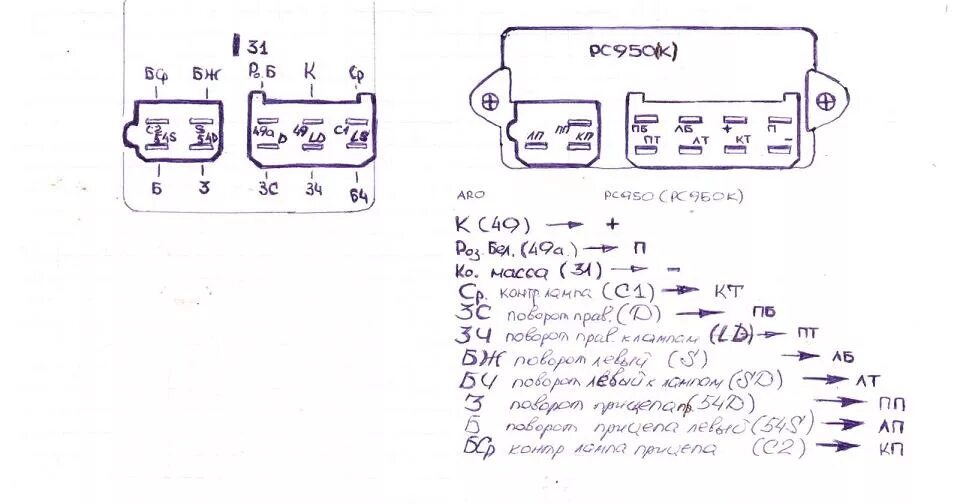 31
БФ БЖ Ро.Б К Ср
С2 S 49а 49 С1
54S 54D D LD LS
Б З ЗС ЗЧ БЧ
РС950(К)
ЛП ПП КП
ПБ ЛБ + П
ПТ ЛТ КТ -
ARO РС950 (РС950К)
К (49) → +
Роз.Бел.(49а.) → П
Ко. масса (31) → -
Ср. контр лампа (С1) → КТ
ЗС поворот прав. (D) → ПБ
ЗЧ поворот прав. к лампам (LD) → ПТ
БЖ поворот левый (S) → ЛБ
БЧ поворот левый к лампам (SD) → ЛТ
З поворот прицепа пр. (54D) → ПП
Б поворот прицепа левый (54S) → ЛП
БФ контр лампа прицепа (С2) → КП